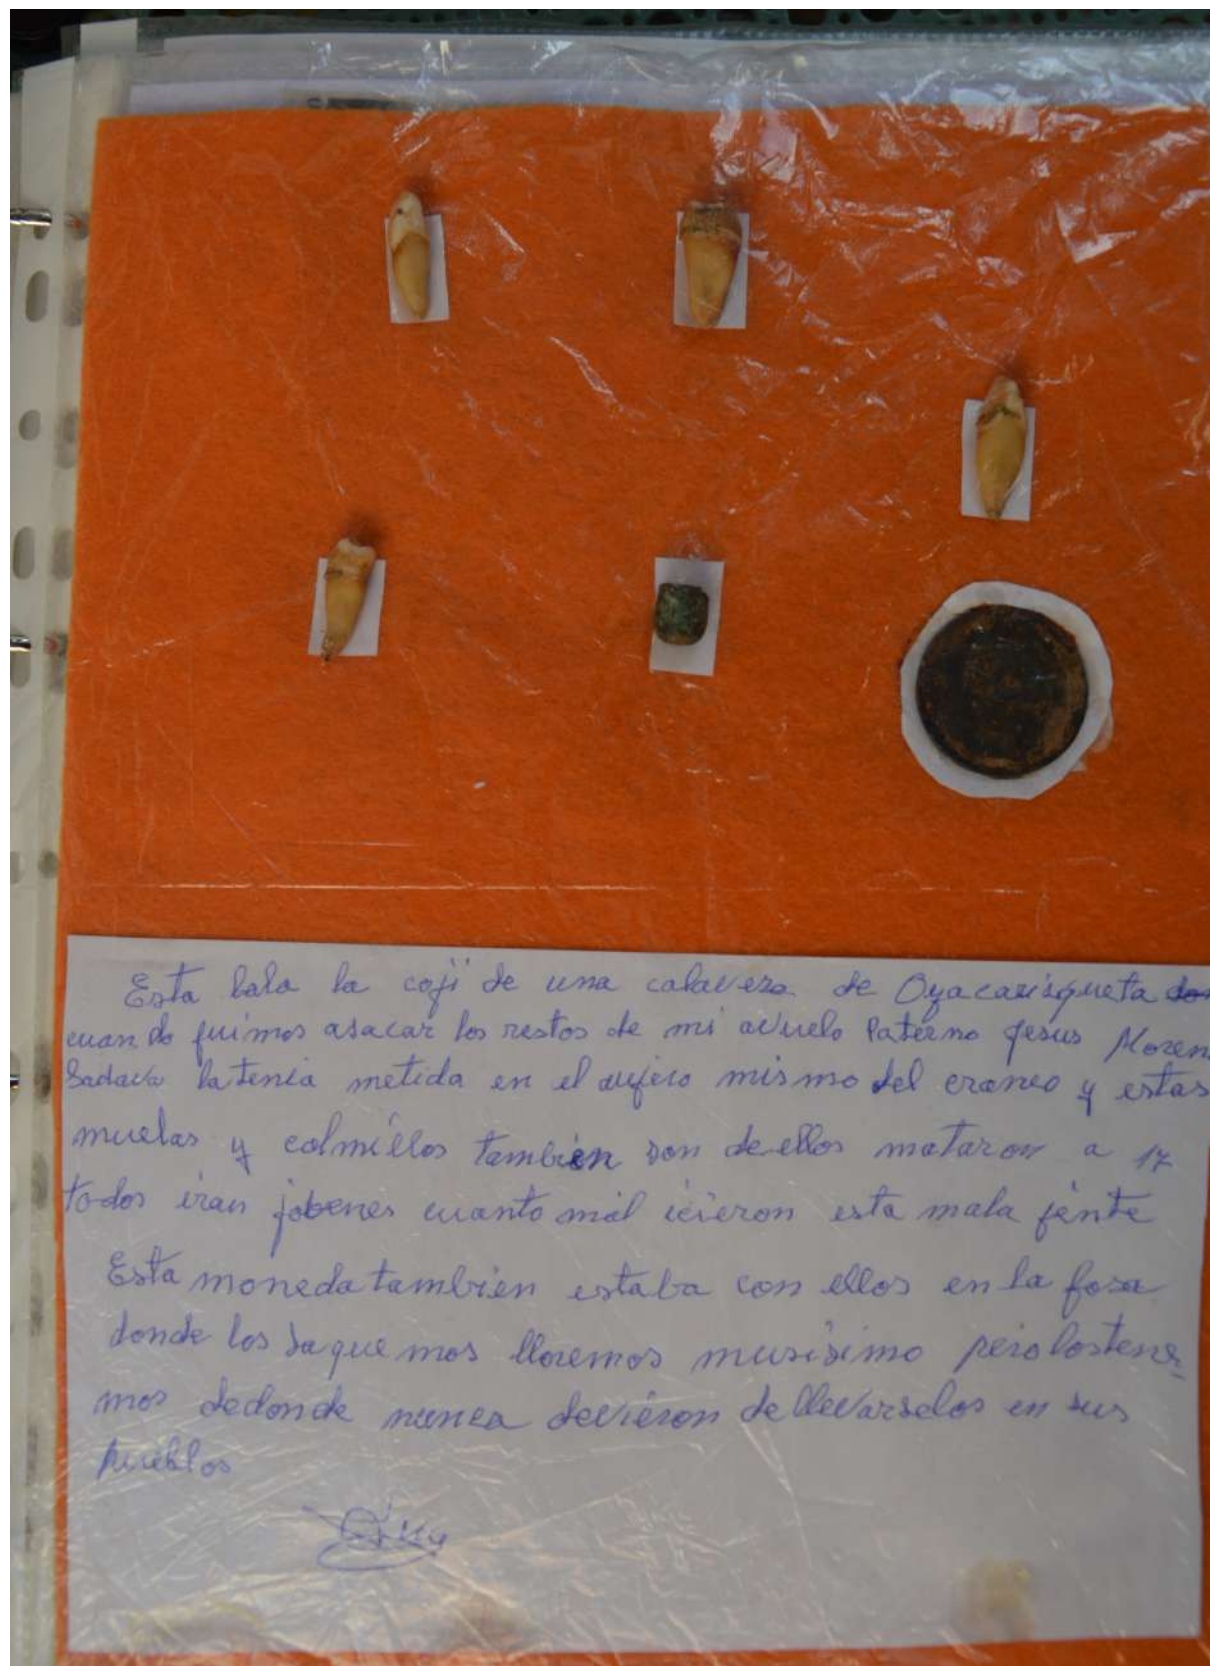 Esta bala la coji de una calavera de Oyacarisqueta do
cuando fuimos asacar los restos de mi avuelo Paterno Jesus Moren
Sadava la tenia metida en el aujero mismo del craneo y estas
muelas y colmillos tambien son de ellos mataron a 17
todos eran jobenes cuanto mal icieron esta mala jente
Esta moneda tambien estaba con ellos en la fosa
donde los saque mos lloremos musisimo pero lostene
mos dedonde nunca devieron de llevarselos en sus
pueblos